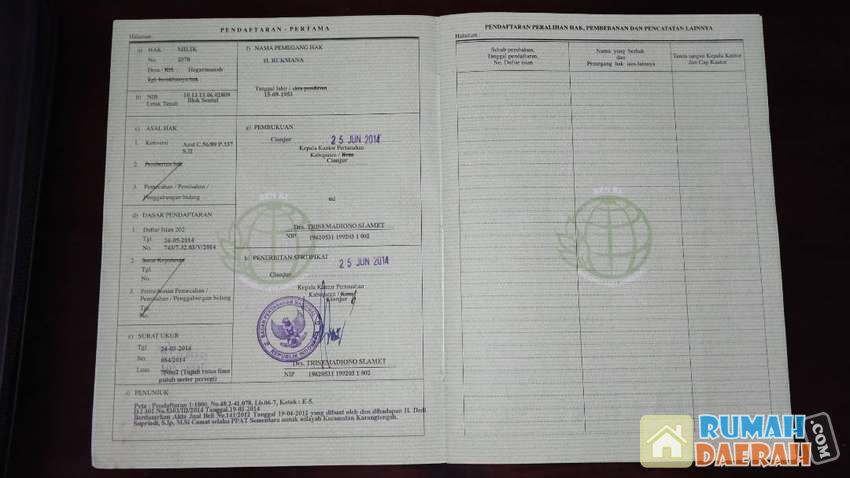 PENDAFTARAN - PERTAMA
Halaman :
a) HAK : MILIK
No. : 2278
Desa / Kel. : Hegarmanah
Tgl. berakhirnya hak
b) NIB 10.13.13.06.02009
Letak Tanah Blok Sentul
c) ASAL HAK
1. Konversi Adat C.56/89 P.337
S.II
2. Pemberian hak
3. Pemecahan / Pemisahan /
Penggabungan bidang
d) DASAR PENDAFTARAN
1. Daftar Isian 202
Tgl. 26-05-2014
No.
2. Surat Keputusan
Tgl.
No.
3. Permohonan Pemecahan /
Pemisahan / Penggabungan bidang
Tgl.
No.
e) SURAT UKUR
Tgl.
No. 084/2014
Luas (Tujuh ratus lima
puluh meter persegi)
f) NAMA PEMEGANG HAK
H. RUKMANA
Tanggal lahir / akta pendirian
15-09-1953
g) PEMBUKUAN
Cianjur 25 JUN 2014
Kepala Kantor Pertanahan
Kabupaten / Kota
Cianjur
ttd
Drs. TRISEMADIONO SLAMET
NIP 19620531 199203 1 002
h) PENERBITAN SERTIPIKAT
Cianjur 25 JUN 2014
Kepala Kantor Pertanahan
Kabupaten / Kota
Cianjur
BADAN PERTANAHAN NASIONAL
REPUBLIK INDONESIA
Drs. TRISEMADIONO SLAMET
NIP 19620531 199203 1 002
i) PENUNJUK
Peta : Pendaftaran 1:1000, No.48.2-41.078, Lb.06-7, Kotak : E-5.
Tanggal 19-03-2014
Berdasarkan Akta Jual Beli No.141/2012 Tanggal 19-04-2012 yang dibuat oleh dan dihadapan H. Dedi
Supriadi, S.Ip, M.Si Camat selaku PPAT Sementara untuk wilayah Kecamatan Karangtengah.
BPN RI
PENDAFTARAN PERALIHAN HAK, PEMBEBANAN DAN PENCATATAN LAINNYA
Halaman :
Sebab perubahan,
Tanggal pendaftaran,
No. Daftar isian
Nama yang berhak
dan
Pemegang hak lain-lainnya
Tanda tangan Kepala Kantor
dan Cap Kantor
BPN RI
RUMAH
DAERAH
.COM